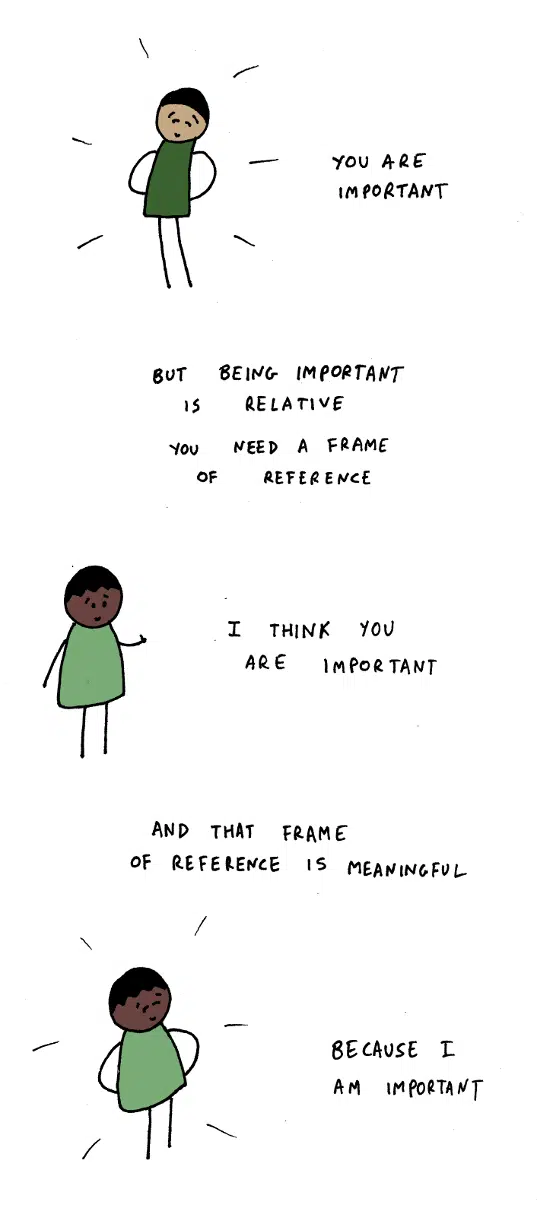 YOU ARE
IMPORTANT
BUT BEING IMPORTANT
IS RELATIVE
YOU NEED A FRAME
OF REFERENCE
I THINK YOU
ARE IMPORTANT
AND THAT FRAME
OF REFERENCE IS MEANINGFUL
BECAUSE I
AM IMPORTANT